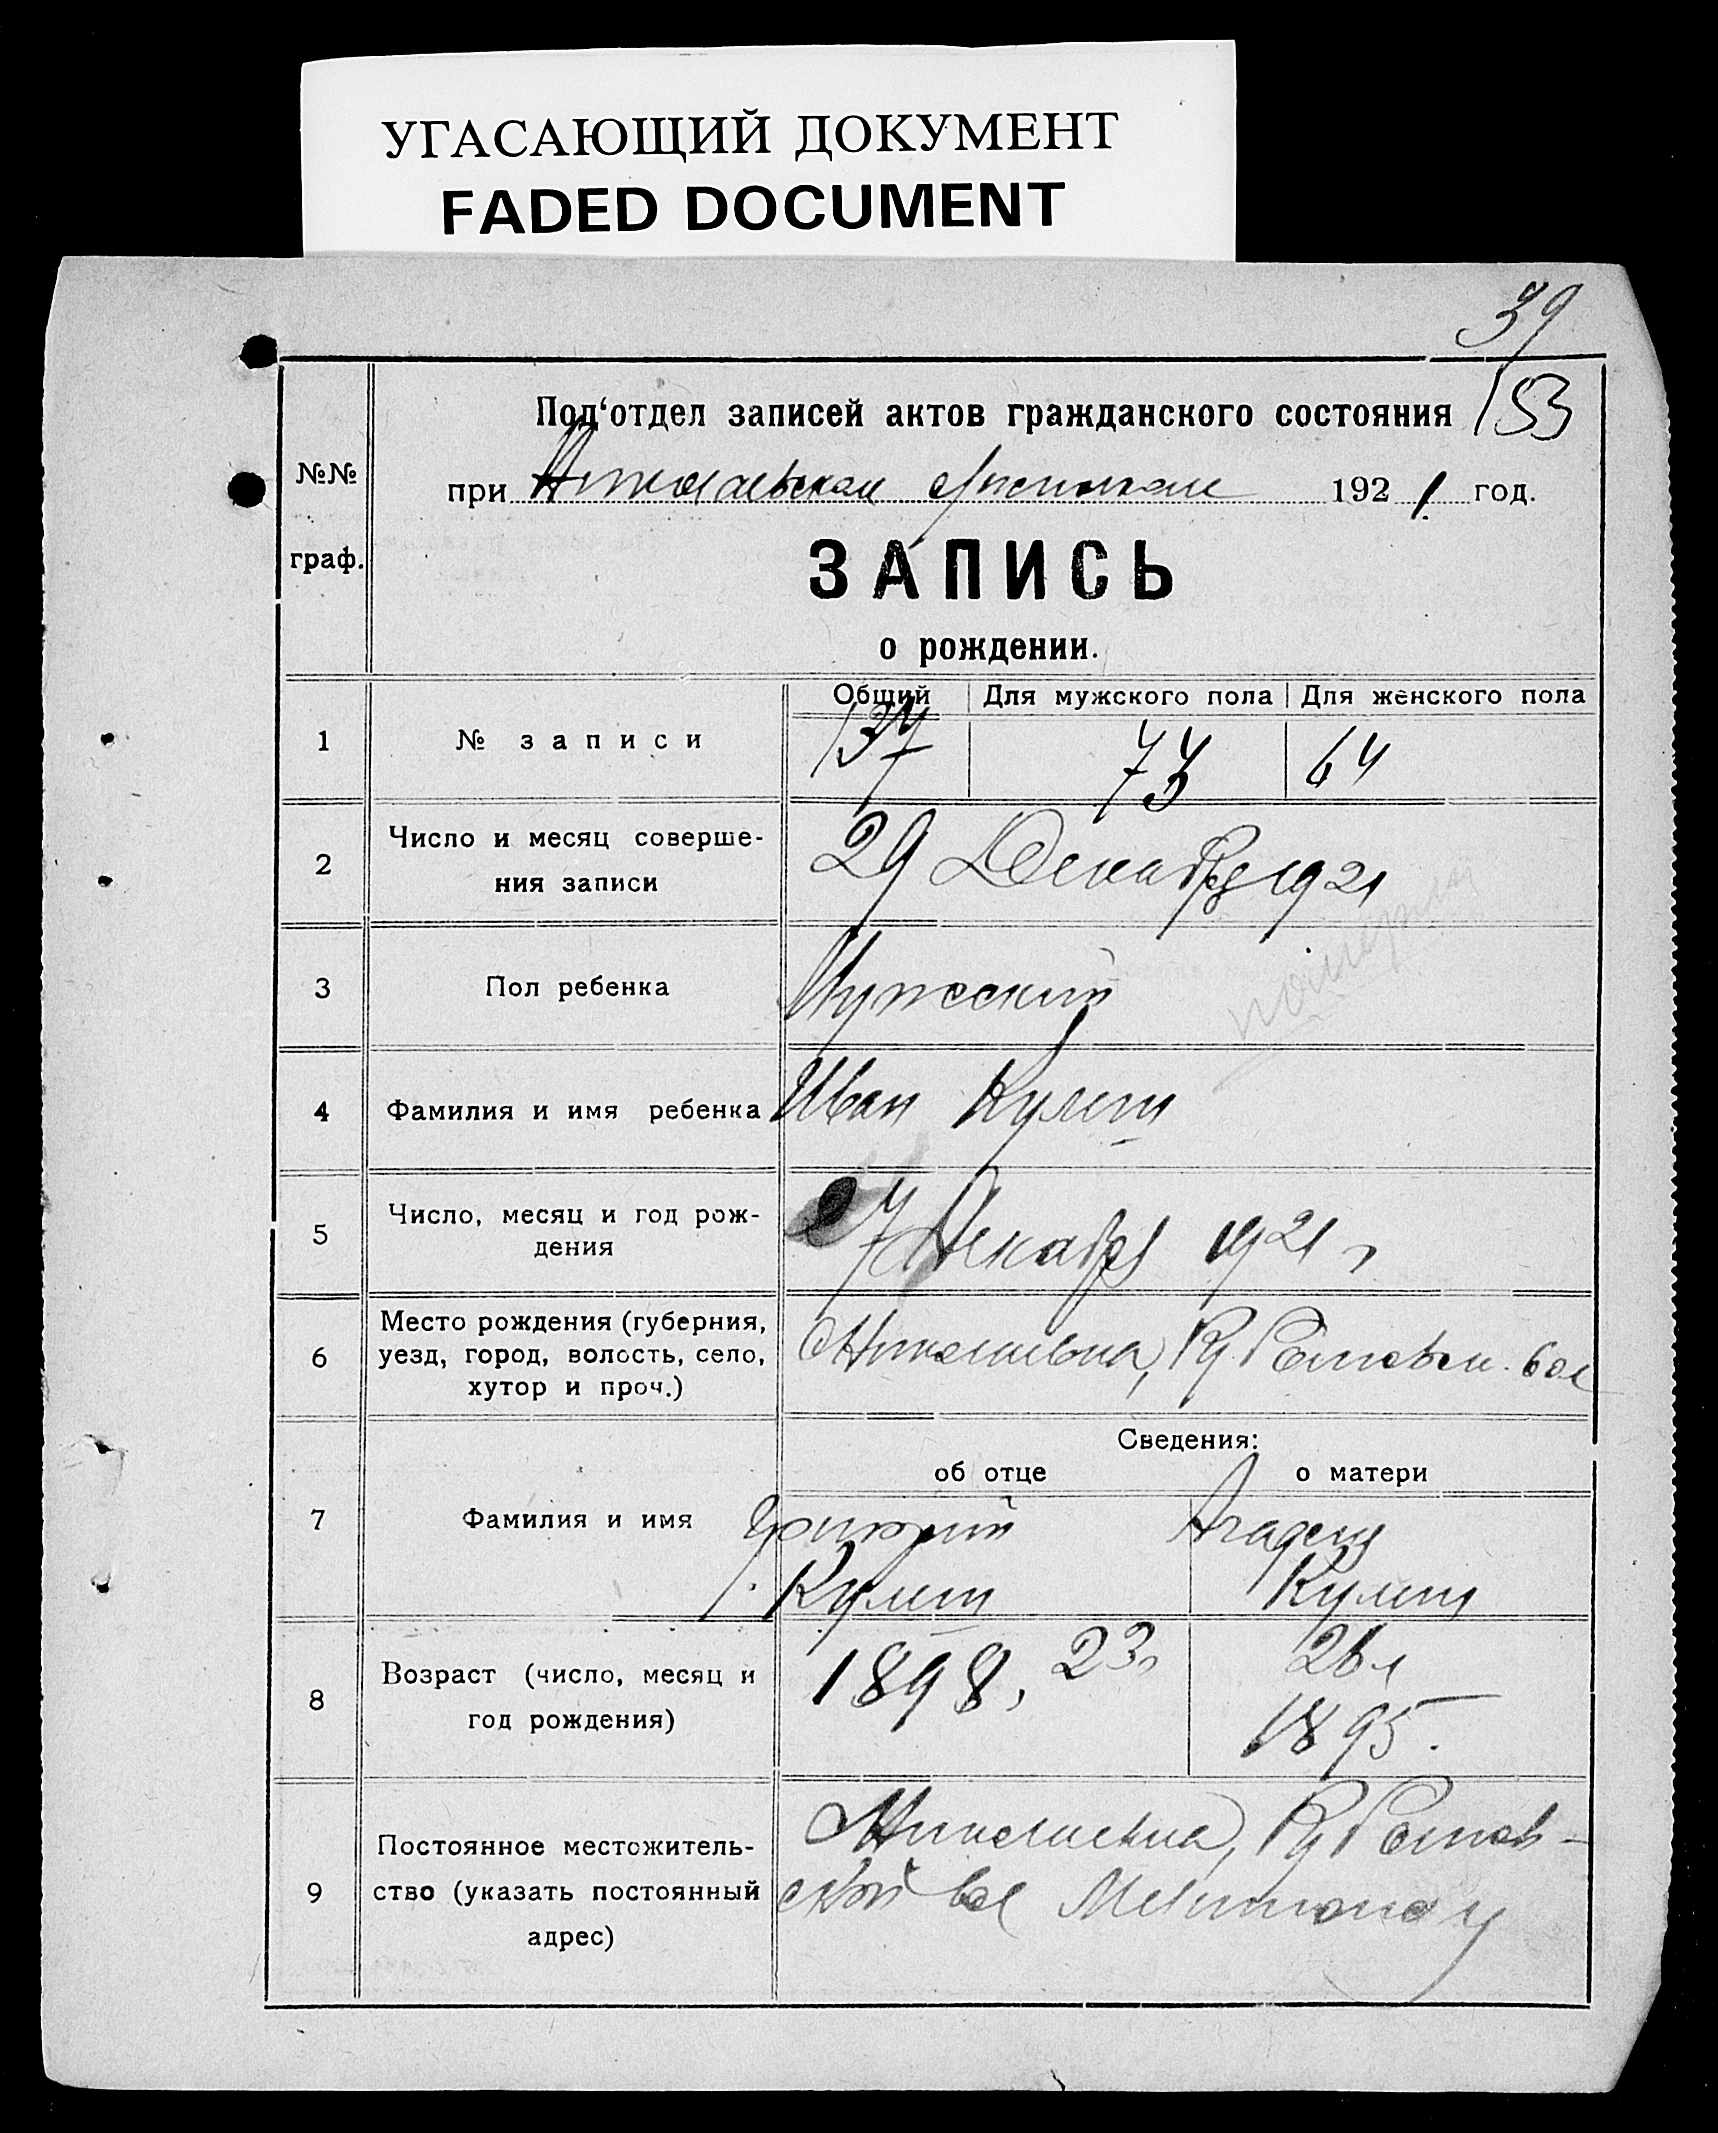 УГАСАЮЩИЙ ДОКУМЕНТ
FADED DOCUMENT
39
153
№№
граф.
Под‘отдел записей актов гражданского состояния
при 1921 год.
ЗАПИСЬ
о рождении.
Общий Для мужского пола Для женского пола
1 № записи 137 73 64
2 Число и месяц соверше-
ния записи
29 Декабря 1921
3 Пол ребенка Мужской
4 Фамилия и имя ребенка Иван Кулеш
5 Число, месяц и год рож-
дения
7 Декабря 1921 г
6 Место рождения (губерния,
уезд, город, волость, село,
хутор и проч.)
Сведения:
об отце о матери
7 Фамилия и имя
Григорий
Кулеш Кулеш
8 Возраст (число, месяц и
год рождения)
1898, 23 26 л
1895.
9 Постоянное местожитель-
ство (указать постоянный
адрес)